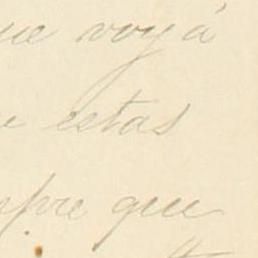 ue voy á
e estas
mpre que